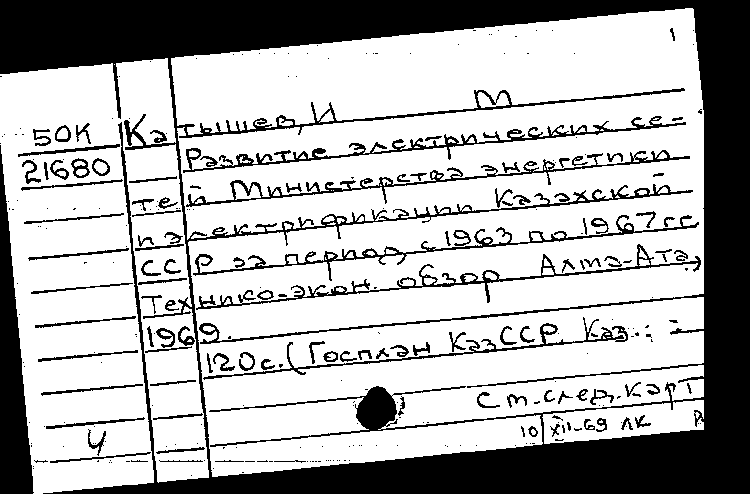 1
50К Катышев, И М
21680 Развитие электрических се-
тей Министерства энергетики
и электрификации Казахской
ССР за период с 1963 по 1967 гг
Технико-экон. обзор Алма-Ата,
1969.
120 с. (Госплан КазССР. Каз.
См. след. карт
Ч
10/XII-69 ЛК